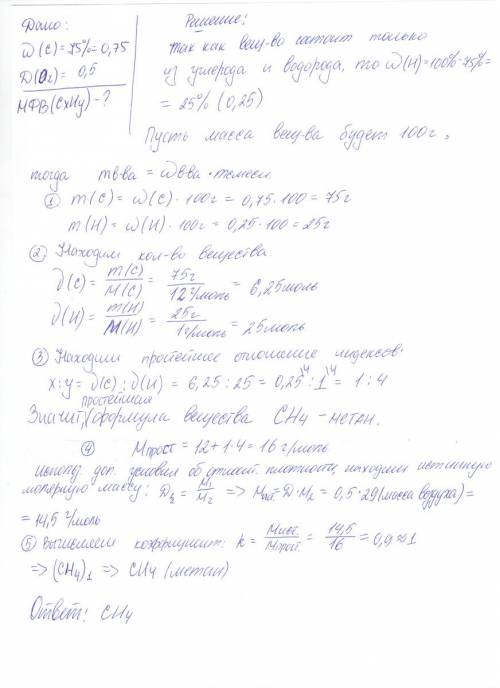 Дано:
ω(C)=75%=0,75
D(O₂)= 0,5
МФВ(CxHy)-?
Решение:
так как вещ-во состоит только
из углерода и водорода, то ω(H)=100%-75%=
= 25% (0,25)
Пусть масса вещ-ва будет 100г,
тогда mв-ва = ωв-ва · mсмеси
① m(C) = ω(C) · 100г = 0,75 · 100 = 75г
m(H) = ω(H) · 100г = 0,25 · 100 = 25г
② Находим кол-во вещества
ν(C) = m(C)/M(C) = 75г/12 г/моль = 6,25 моль
ν(H) = m(H)/M(H) = 25г/1 г/моль = 25 моль
③ Находим простейшее отношение индексов:
x:y = ν(C) : ν(H) = 6,25 : 25 = 0,25 : 1 |·4 = 1 : 4
простейшая
Значит, формула вещества CH₄ - метан.
④ Mпрост = 12+1·4 = 16 г/моль
использ. доп. условия об относит. плотности, находим истинную
молярную массу: D₂ = M₁/M₂ => Mист = D·M₂ = 0,5 · 29 (масса воздуха) =
= 14,5 г/моль
⑤ Вычисляем коэффициент: k = Mист./Mпрост. = 14,5/16 = 0,9 ≈ 1
=> (CH₄)₁ => CH₄ (метан)
Ответ: CH₄